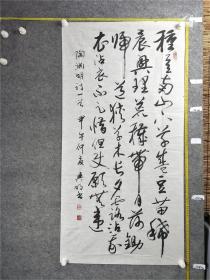 種豆南山下草盛豆苗稀
晨興理荒穢帶月荷鋤
歸道狹草木長夕露沾我
衣沾衣不足惜但使願無違
陶淵明詩一首甲午仲夏